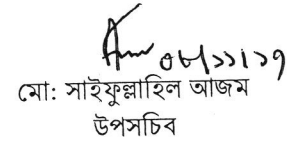 ০৮/১১/১৭
মো: সাইফুল্লাহিল আজম
উপসচিব